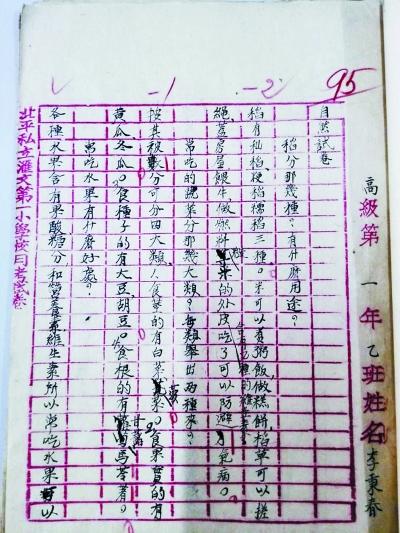 95
-2
-1
高級第一年乙班姓名李東春
自然試卷
稻分那幾種?有什麼用途。
稻有秈稻、粳稻、糯稻三種。米可以煮粥飯,做糕餅,稻草可以搓
繩、蓋房屋、餵牛、做燃料,米的外皮吃了可以防避病。
常吃的蔬菜分那幾大類?每類舉出兩種來?
按其被食分可分四大類,食葉的有白菜菠菜。食果實的有
黃瓜、冬瓜。食種子的有大豆、胡豆。食根的有甘薯馬苓薯。
常吃水果有什麼好處?
各種水果含有果酸糖分和營養素維生素所以常吃水果可以
北平私立滙文第一小學校月考試卷